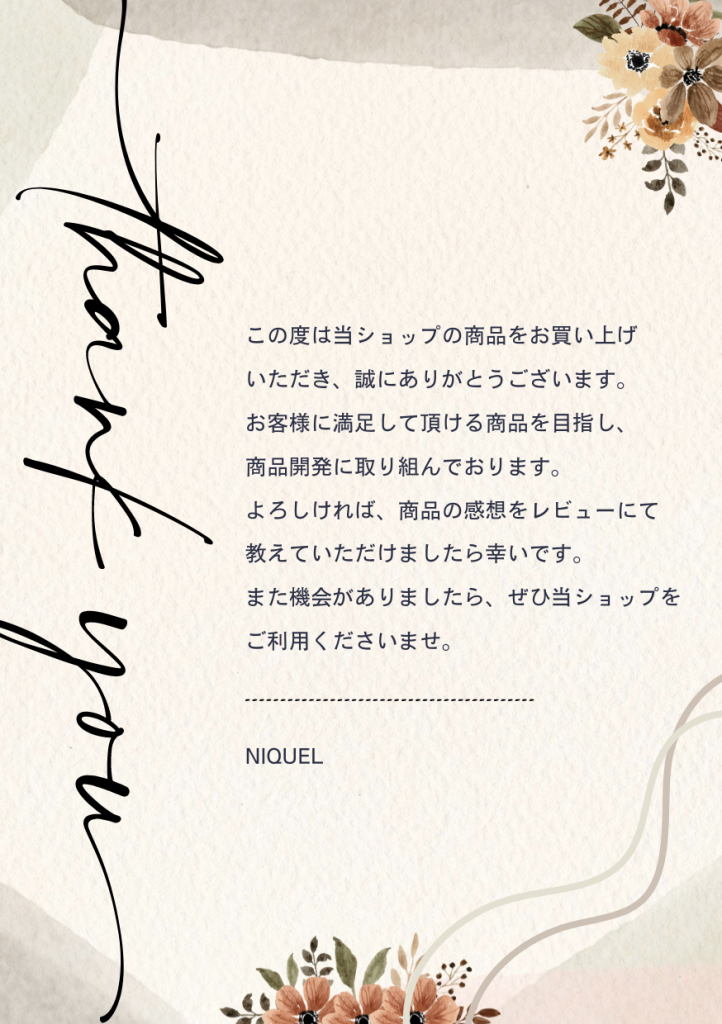 thank you
この度は当ショップの商品をお買い上げ
いただき、誠にありがとうございます。
お客様に満足して頂ける商品を目指し、
商品開発に取り組んでおります。
よろしければ、商品の感想をレビューにて
教えていただけましたら幸いです。
また機会がありましたら、ぜひ当ショップを
ご利用くださいませ。
NIQUEL